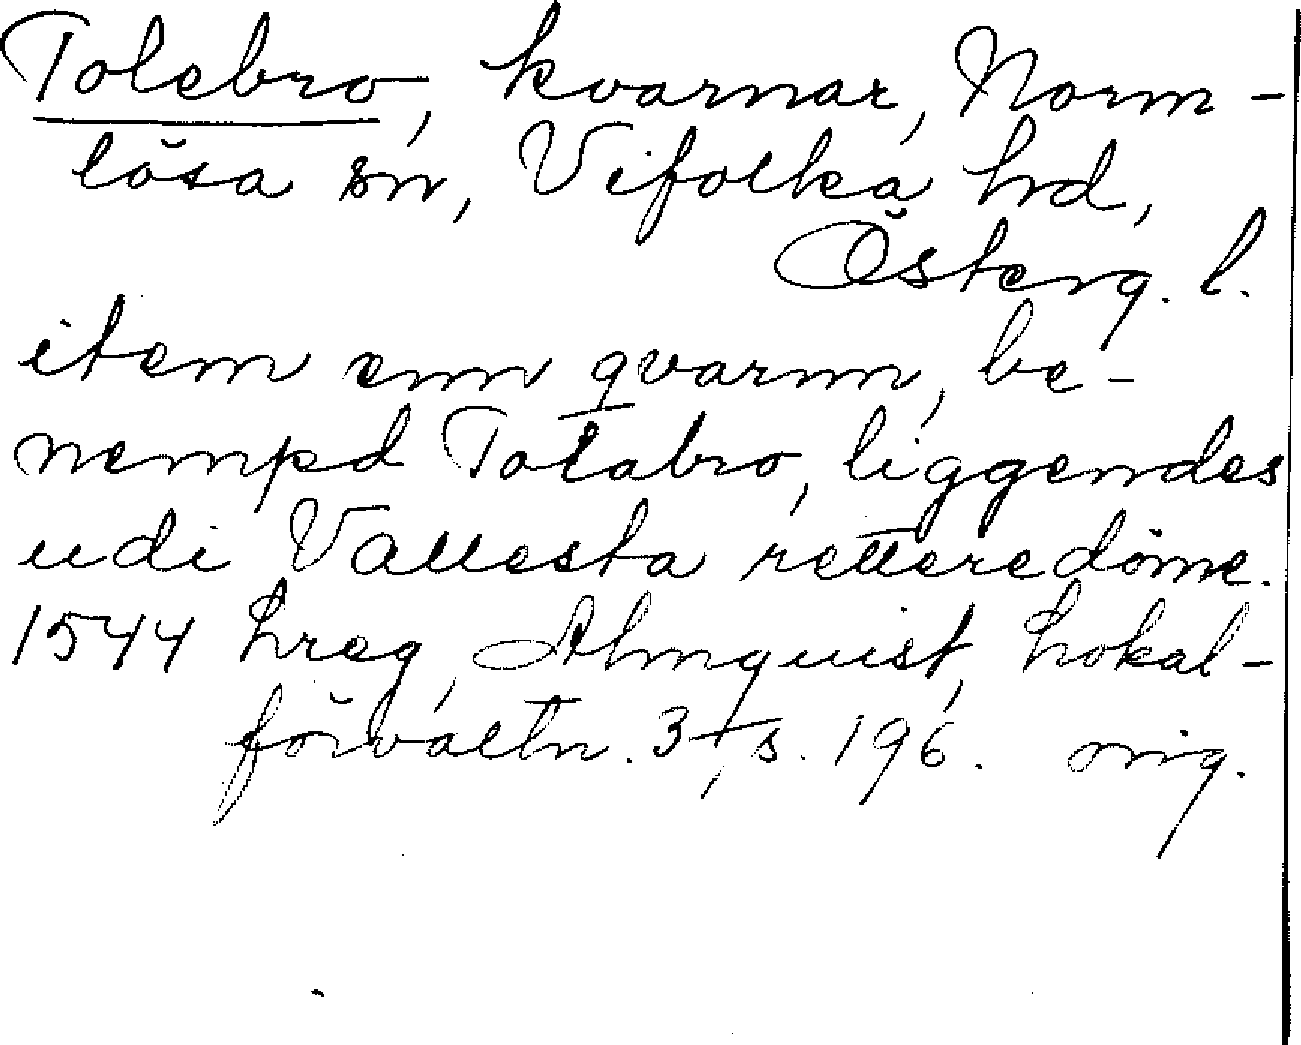 Tolebro, kvarnar, Norm-
lösa sn, Vifolka hd,
Österg. l.
item enn qvarnn, be-
nempd Tolabro, liggendes
udi Vallesta retteredöme.
1544 Lreg, Almquist, Lokal-
förvaltn. 3, s. 196. orig.